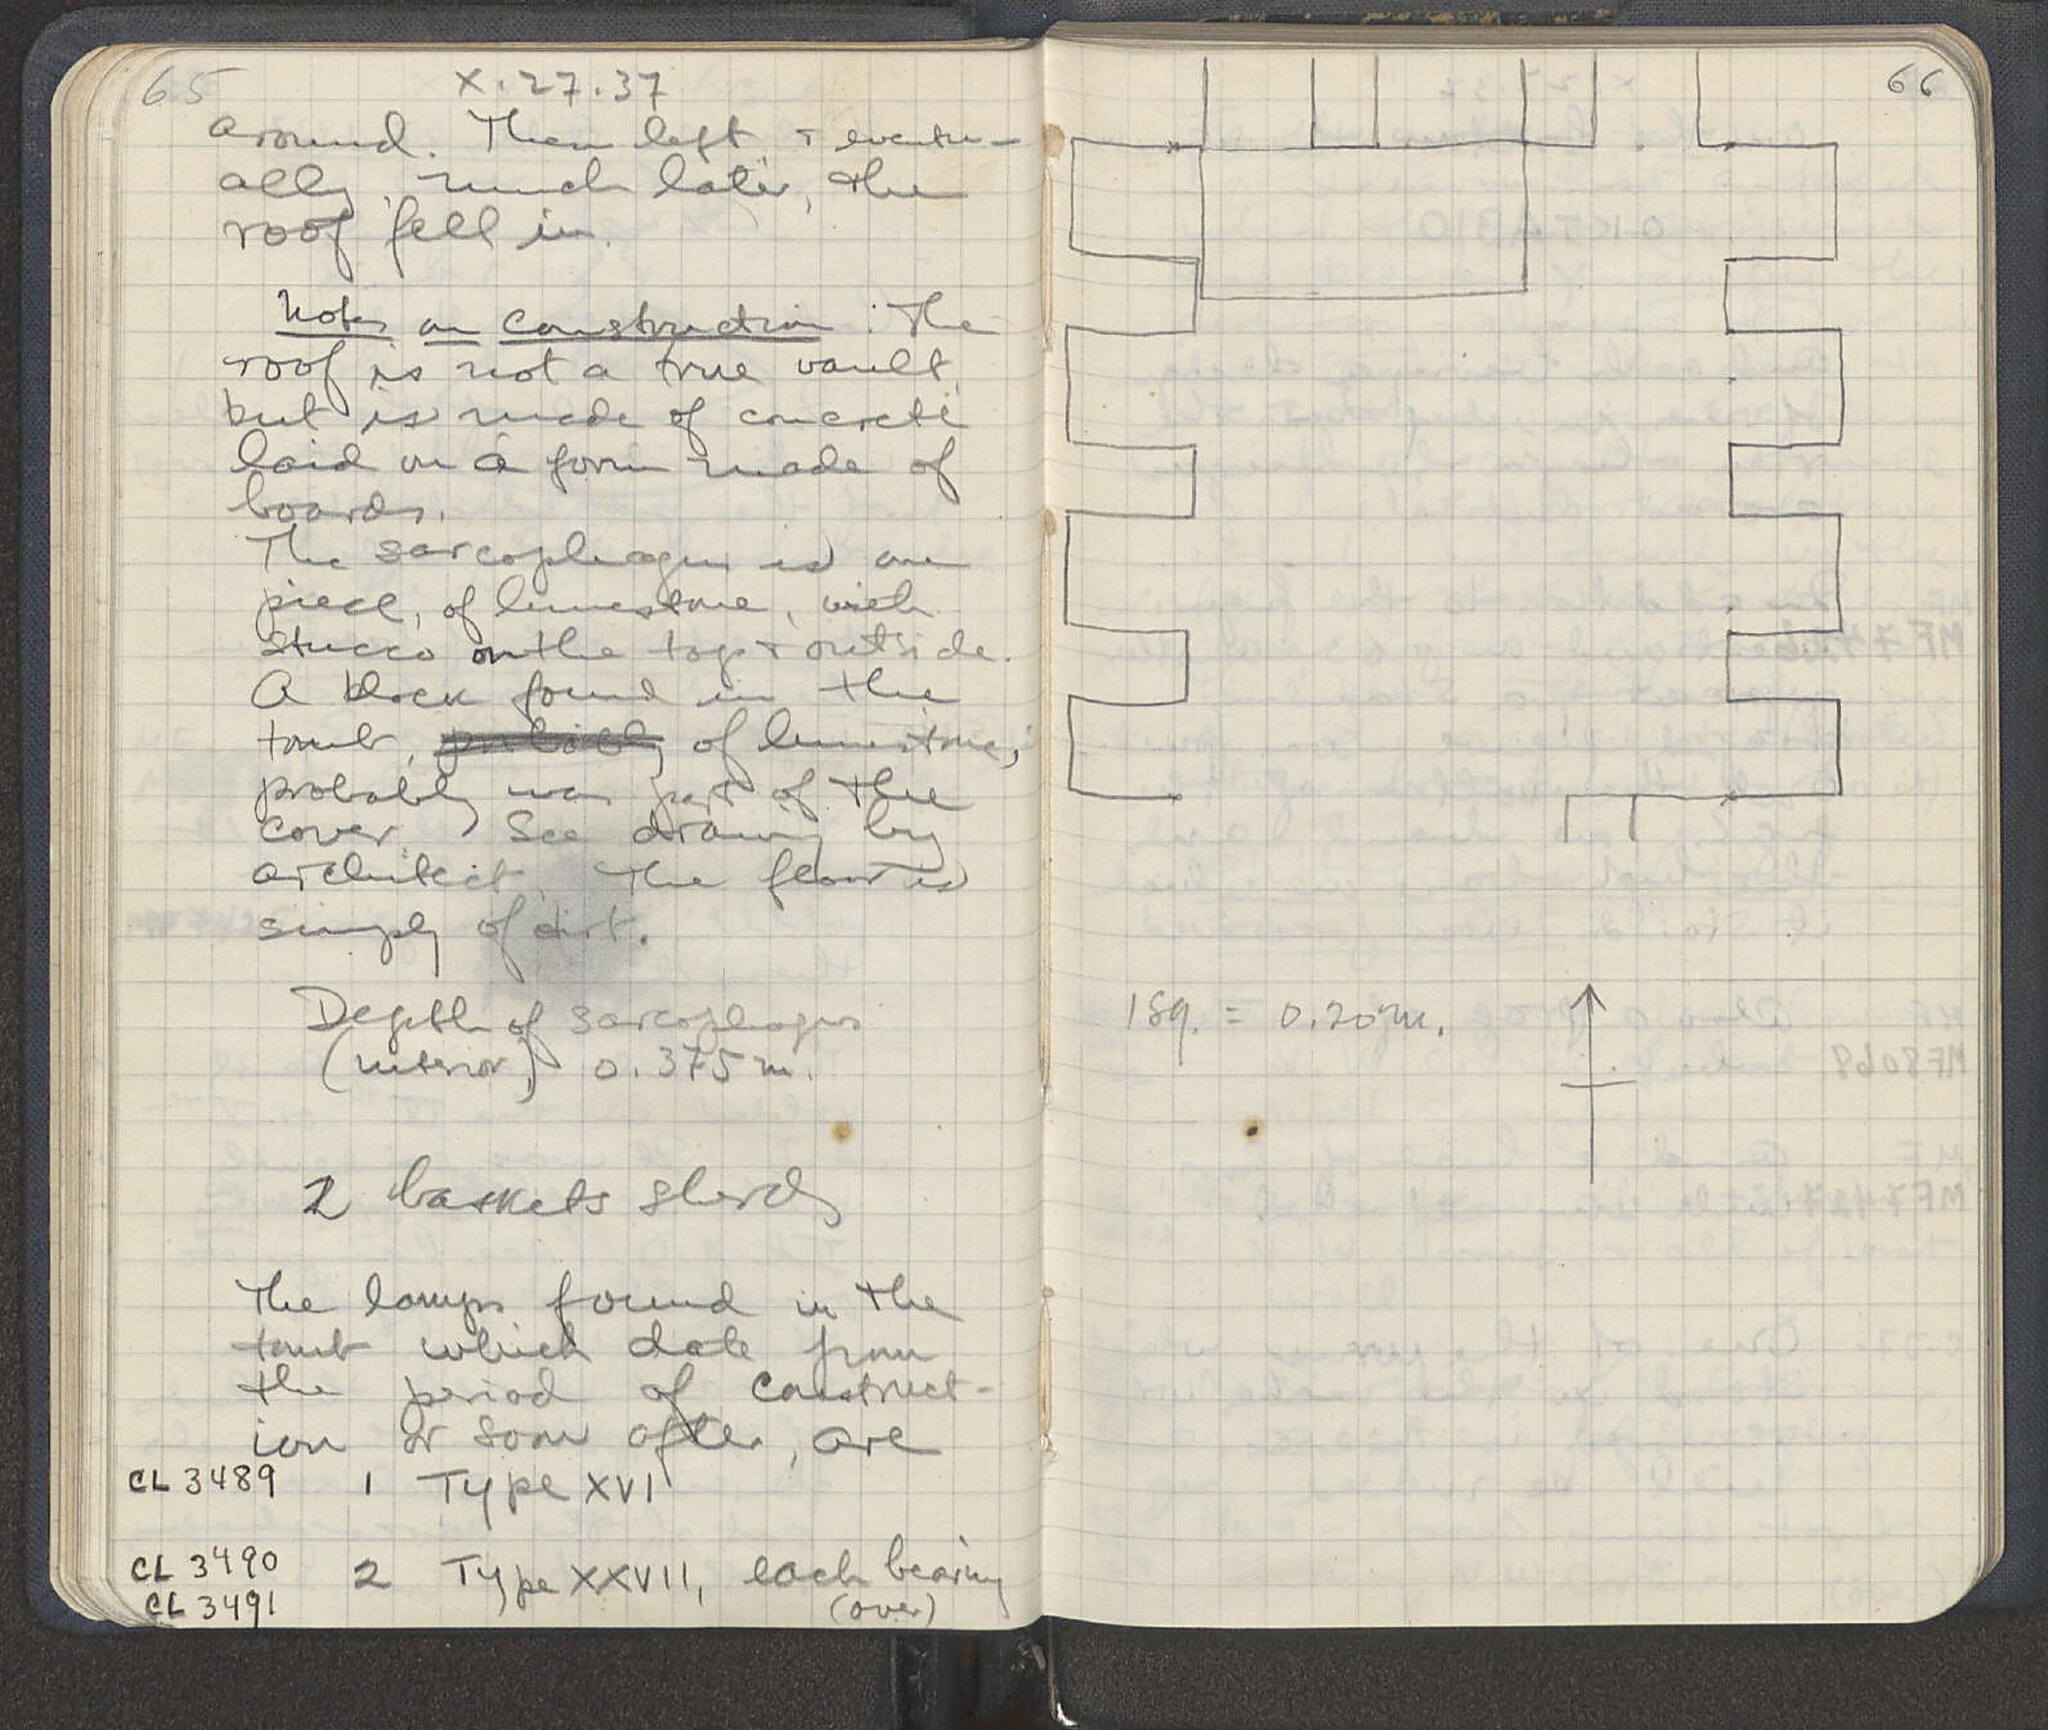 65
X.27.37
around. Then left, + eventu-
ally, much later, the
roof fell in.
Notes on construction: The
roof is not a true vault,
but is made of concrete
laid on a form made of
boards.
The sarcophagus is one
piece, of limestone, with
stucco on the top + outside.
A block found in the
tomb, probably of limestone,
probably was part of the
cover. See drawing by
architect. The floor is
simply of dirt.
Depth of sarcophagus
(interior) 0.375 m.
2 baskets sherds
The lamps found in the
tomb which date from
the period of construct-
ion or soon after, are
CL 3489 1 Type XVI
CL 3490 2 Type XXVII, each bearing
CL 3491 (over)
66
1 sq. = 0.20 m.